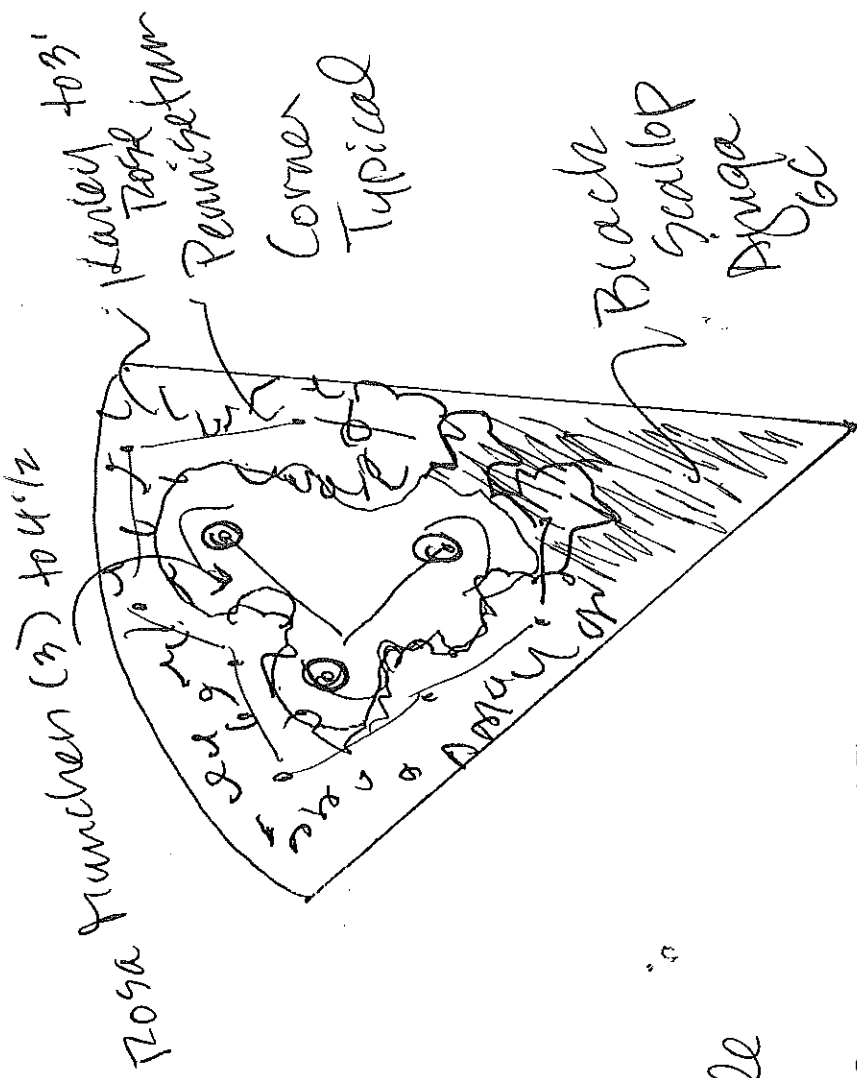 Rosa Munchen (3) to 4 1/2'
Karley to 3'
Rose
Pennisetum
Corner
Typical
Black
Scallop
Ajuga